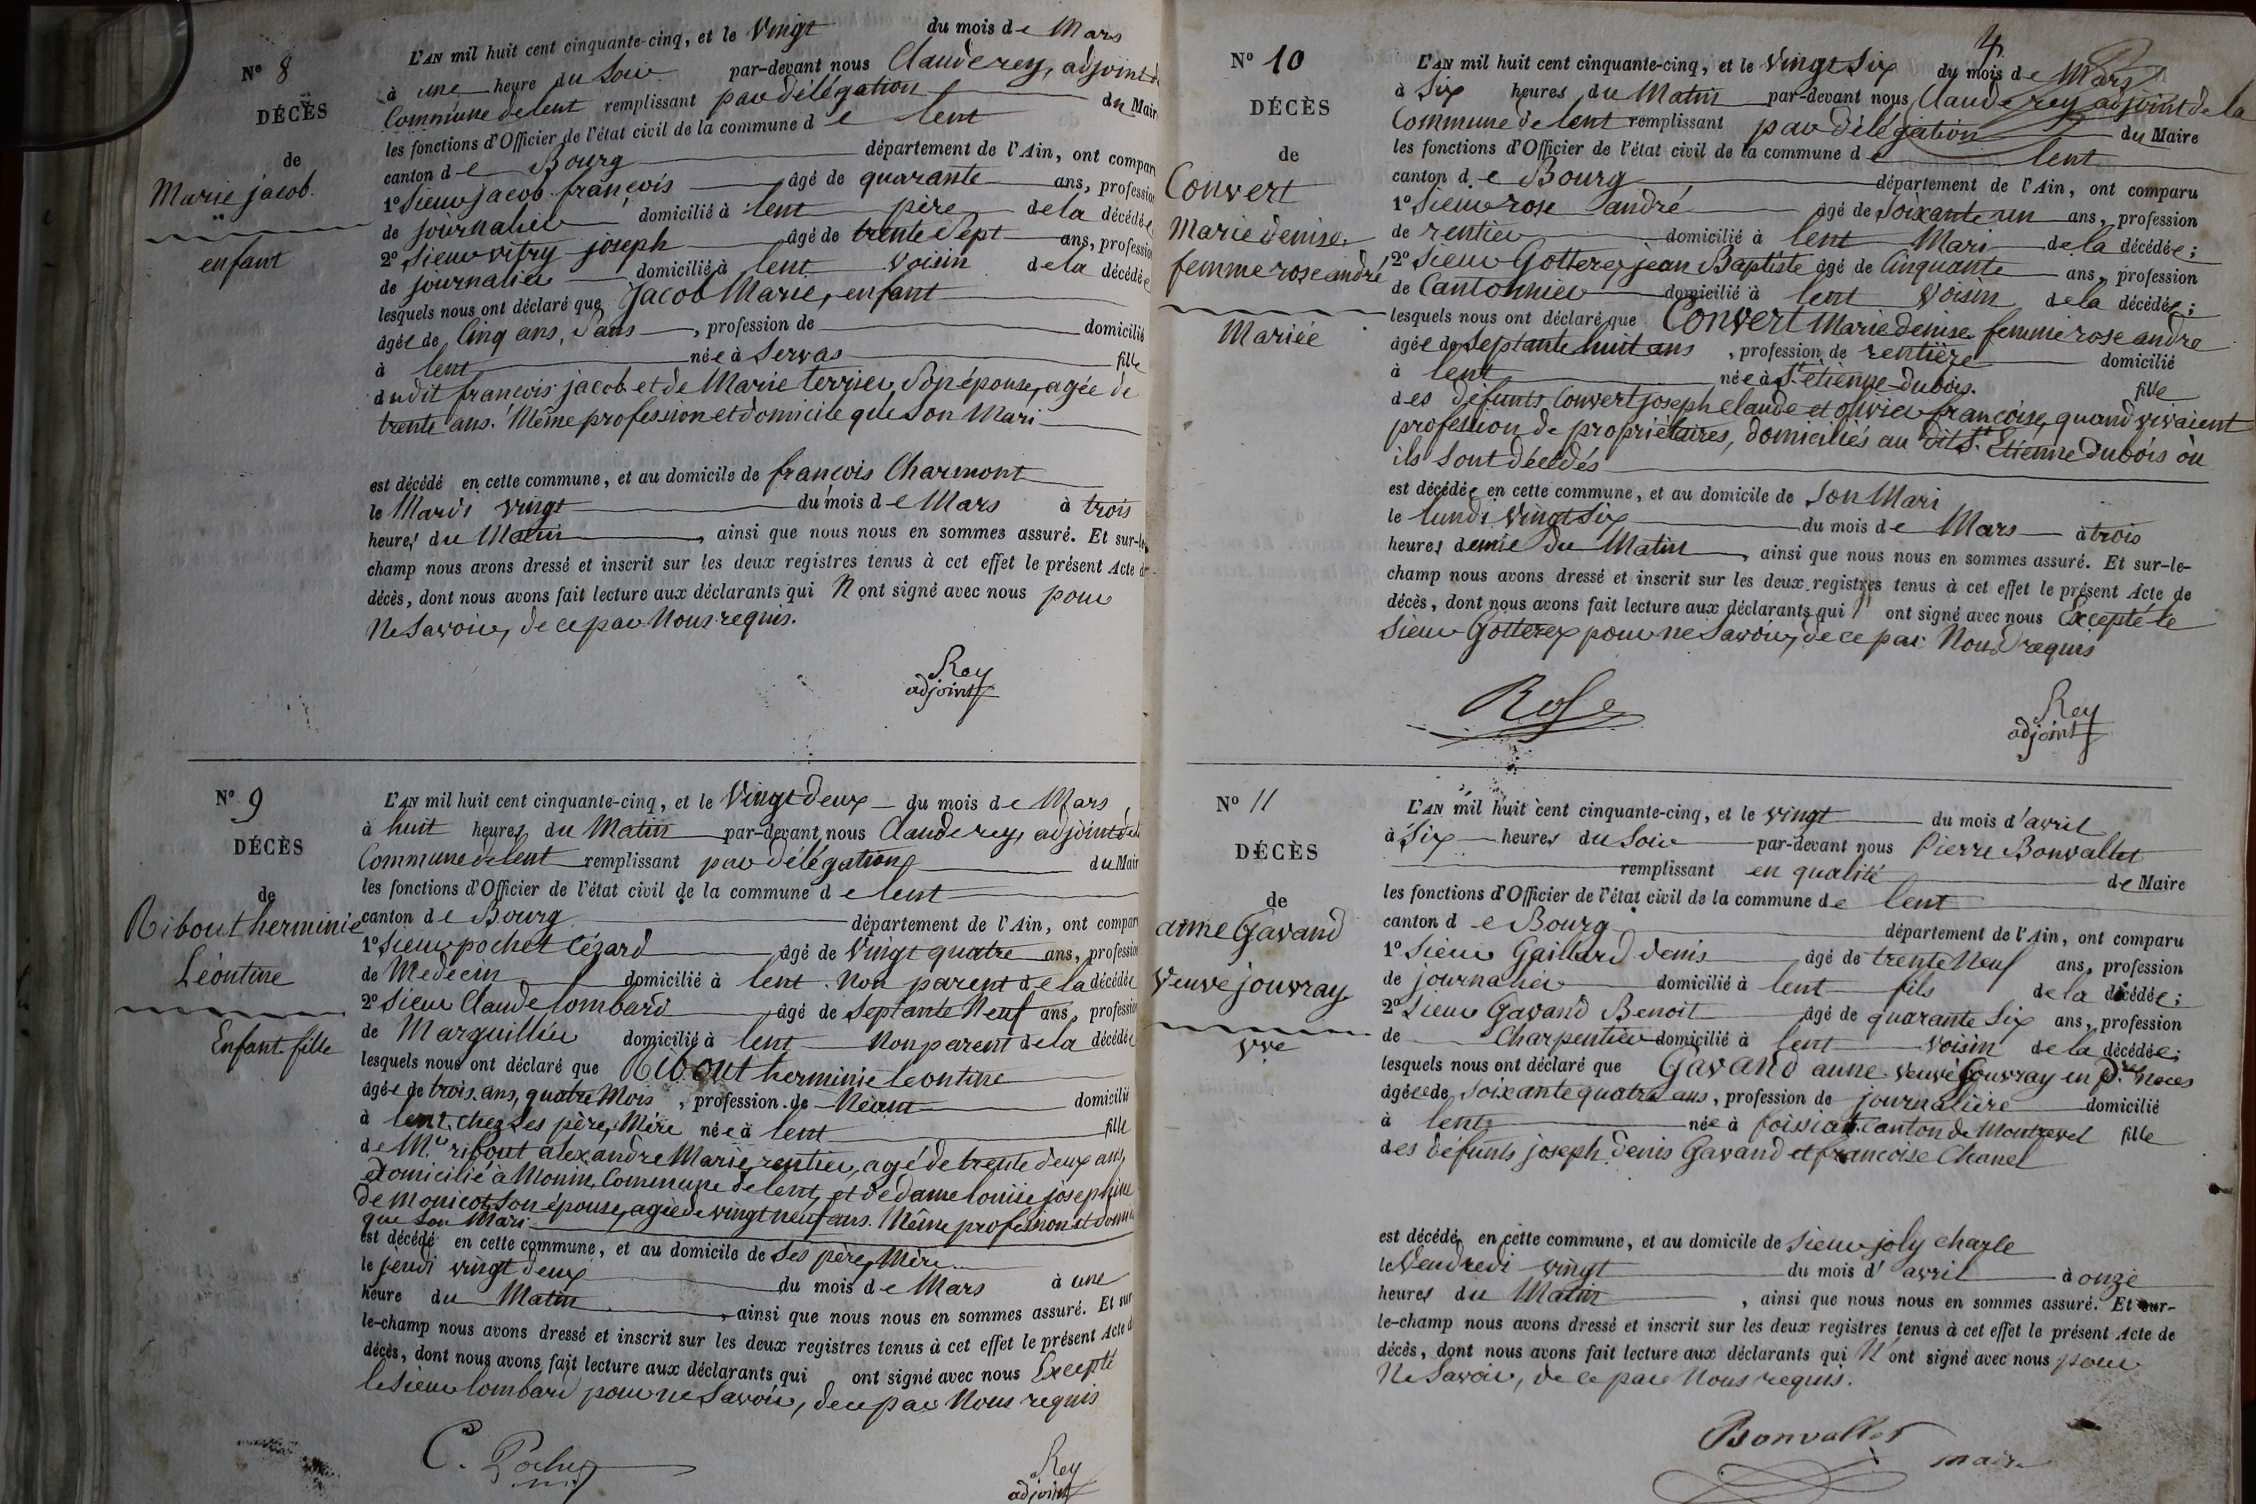 N° 8
DÉCÈS
de
Marie jacob
enfant
L'AN mil huit cent cinquante-cinq, et le Vingt du mois de Mars
à une heure du Soir par-devant nous Claude rey, adjoint
Commune de lent remplissant par délégation du Maire
les fonctions d'Officier de l'état civil de la commune de lent
canton de Bourg département de l'Ain, ont compar
1° Sieur jacob françois âgé de quarante ans, profession
de journalier domicilié à lent père de la décédée
2° Sieur vitry joseph âgé de trente Sept ans, profession
de journalier domicilié à lent voisin de la décédée
lesquels nous ont déclaré que Jacob Marie, enfant
âgée de Cinq ans, Sans, profession de domicilié
à lent née à Servas fille
dudit françois jacob et de Marie terrier, Son épouse, agée de
trente ans. Même profession et domicile que Son Mari
est décédé en cette commune, et au domicile de françois Charmont
le Mardi vingt du mois de Mars à trois
heures du Matin, ainsi que nous nous en sommes assuré. Et sur-le-
champ nous avons dressé et inscrit sur les deux registres tenus à cet effet le présent Acte de
décès, dont nous avons fait lecture aux déclarants qui N'ont signé avec nous pour
Ne Savoir, de ce par Nous requis.
Rey
adjoint
N° 9
DÉCÈS
de
Ribout herminie
Léontine
Enfant fille
L'AN mil huit cent cinquante-cinq, et le Vingt deux du mois de Mars
à huit heures du Matin par-devant nous Claude rey, adjoint de la
Commune de lent remplissant par délégation du Mair
les fonctions d'Officier de l'état civil de la commune de lent
canton de Bourg département de l'Ain, ont compar
1° Sieur pochet Cézard âgé de Vingt quatre ans, profession
de Medecin domicilié à lent Non parent de la décédée
2° Sieur Claude lombard âgé de Septante Neuf ans, profession
de Marguillier domicilié à lent Non parent de la décédée
lesquels nous ont déclaré que Ribout herminie leontine
âgée de trois ans, quatre Mois, profession de Néant domicilié
à lent chez Ses père, Mère née à lent fille
de Mr. ribout alexandre Marie, rentier, agé de trente deux ans,
domicilié à Monin, Commune de lent, et de dame louise joséphine
de monicot Son épouse, agée de vingt neuf ans. Même profession et domi
que Son Mari
est décédé en cette commune, et au domicile de Ses père, Mère
le jeudi vingt deux du mois de Mars à une
heure du Matin, ainsi que nous nous en sommes assuré. Et sur
le-champ nous avons dressé et inscrit sur les deux registres tenus à cet effet le présent Acte d
décès, dont nous avons fait lecture aux déclarants qui ont signé avec nous Excepté
le Sieur lombard pour ne Savoir, de ce par Nous requis
C. Pochet
Rey
adjoint
4
N° 10
DÉCÈS
de
Convert
Marie denise,
femme rose andré
Mariée
L'AN mil huit cent cinquante-cinq, et le Vingt Six du mois de Mars
à Six heures du Matin par-devant nous Claude rey adjoint de la
Commune de lent remplissant par délégation du Maire
les fonctions d'Officier de l'état civil de la commune de lent
canton de Bourg département de l'Ain, ont comparu
1° Sieur rose andré âgé de Soixante un ans, profession
de rentier domicilié à lent Mari de la décédée;
2° Sieur Gotterey jean Baptiste âgé de Cinquante ans, profession
de Cantonnier domicilié à lent Voisin de la décédée;
lesquels nous ont déclaré que Convert Marie denise femme rose andre
âgée de Septante huit ans, profession de rentière domicilié
à lent née à St. etienne dubois. fille
des défunts Convert joseph Claude et olivier françoise, quand vivaient
profession de propriétaires, domiciliés au dit St. Etienne Dubois où
ils Sont décédés
est décédée en cette commune, et au domicile de Son Mari
le lundi Vingt Six du mois de Mars à trois
heures demie du Matin, ainsi que nous nous en sommes assuré. Et sur-le-
champ nous avons dressé et inscrit sur les deux registres tenus à cet effet le présent Acte de
décès, dont nous avons fait lecture aux déclarants qui ont signé avec nous Excepté le
Sieur Gotterey pour ne Savoir, de ce par Nous requis
Rose
Rey
adjoint
N° 11
DÉCÈS
de
anne Gavand
Veuve jouvray
vve
L'AN mil huit cent cinquante-cinq, et le vingt du mois d'avril
à Six heures du Soir par-devant nous Pierre Bonvallet
remplissant en qualité de Maire
les fonctions d'Officier de l'état civil de la commune de lent
canton de Bourg département de l'Ain, ont comparu
1° Sieur Gaillard denis âgé de trente Neuf ans, profession
de journalier domicilié à lent fils de la décédée;
2° Sieur Gavand Benoit âgé de quarante Six ans, profession
de Charpentier domicilié à lent voisin de la décédée;
lesquels nous ont déclaré que Gavand anne veuve Jouvray en noces
âgée de Soixante quatre ans, profession de journalière domicilié
à lent née à foissiat Canton de Montrevel fille
des défunts joseph denis Gavand et françoise Chanel
est décédé, en cette commune, et au domicile de Sieur joly Charle
le Vendredi vingt du mois d'avril à onze
heures du Matin, ainsi que nous nous en sommes assuré. Et sur-
le-champ nous avons dressé et inscrit sur les deux registres tenus à cet effet le présent Acte de
décès, dont nous avons fait lecture aux déclarants qui N'ont signé avec nous pour
Ne Savoir, de ce par Nous requis.
Bonvallet
maire